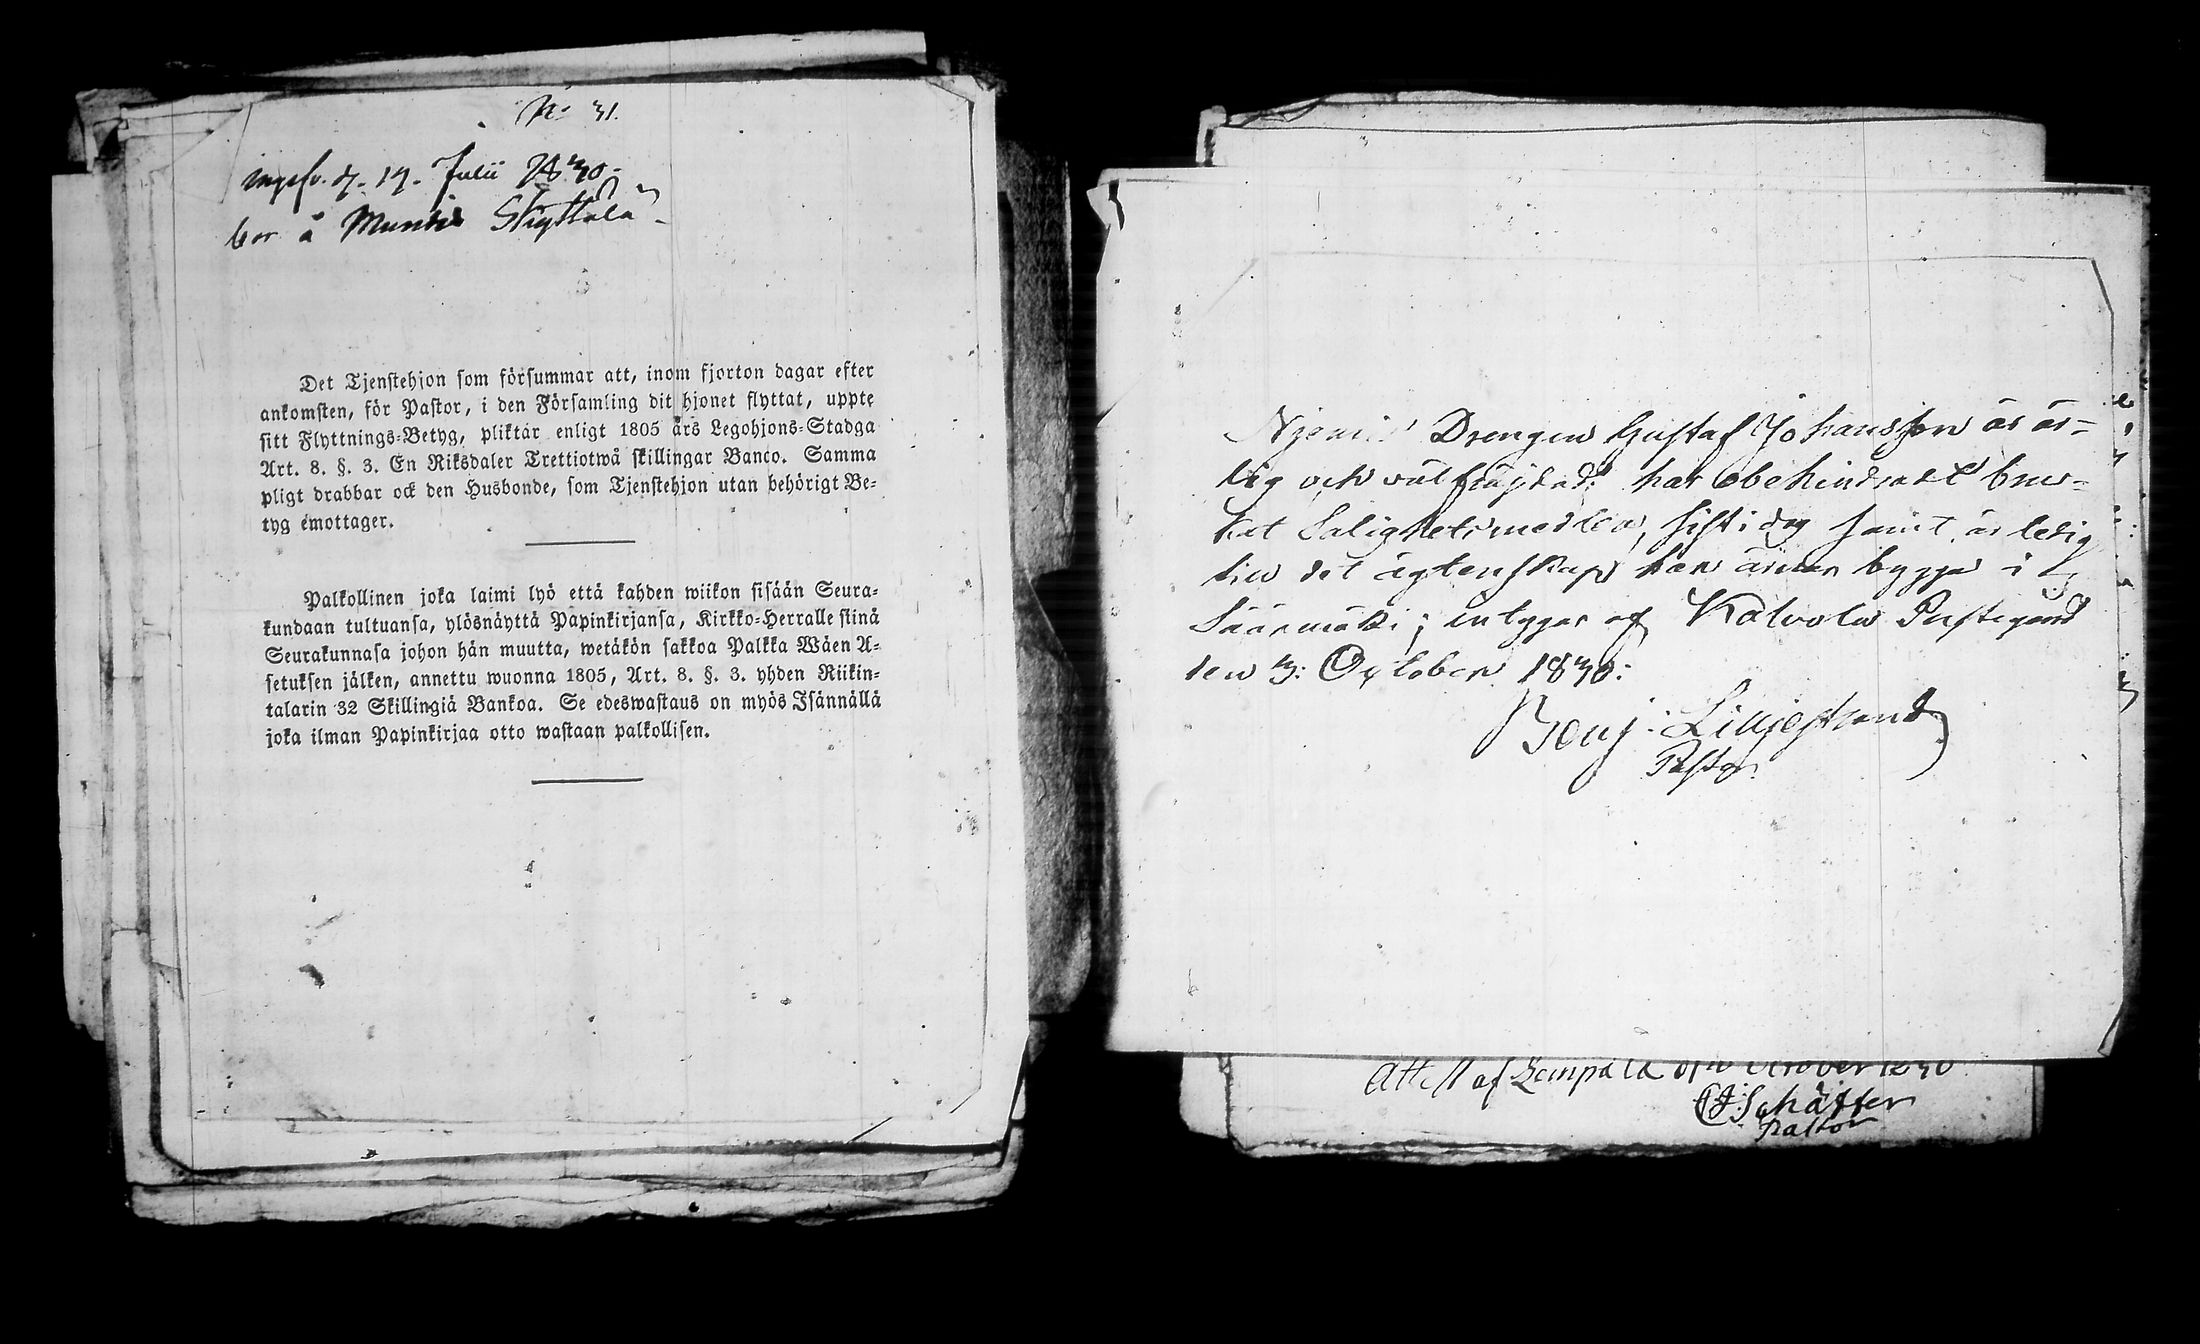 No 31.
ingifv. d. 17. Julii 1830.
bor å
Det Tjenstehjon som försummar att, inom fjorton dagar efter
ankomsten, för Pastor, i den Församling dit hjonet flyttat, uppte
sitt Flyttnings-Betyg, pliktar enligt 1805 års Legohjons-Stadga
Art. 8. §. 3. En Riksdaler Trettiotwå skillingar Banco. Samma
pligt drabbar ock den Husbonde, som Tjenstehjon utan behörigt Be-
tyg emottager.
Palkollinen joka laimi lyö että kahden wiikon sisään Seura-
kundaan tultuansa, ylösnäyttä Papinkirjansa, Kirkko-Herralle siinä
Seurakunnasa johon hän muutta, wetäkön sakkoa Palkka Wäen A-
setuksen jälken, annettu wuonna 1805, Art. 8. §. 3. yhden Riikin-
talarin 32 Skillingiä Bankoa. Se edeswastaus on myös Isännällä
joka ilman Papinkirjaa otto wastaan palkollisen.
Drengen Gustaf Johansson är är-
lig och välfräjdad: har obehindradt bru-
kat Salighetsmedlen, sist i dag samt är ledig
till det ägtenskap han ärnar bygga i
Säärmäki; intygar af Kalvola Prestegård
den 3: October 1830:
Benj: Liljestrand
Pastor.
Attest af Lempälä October 1830
CJ: Schäffer
Pastor